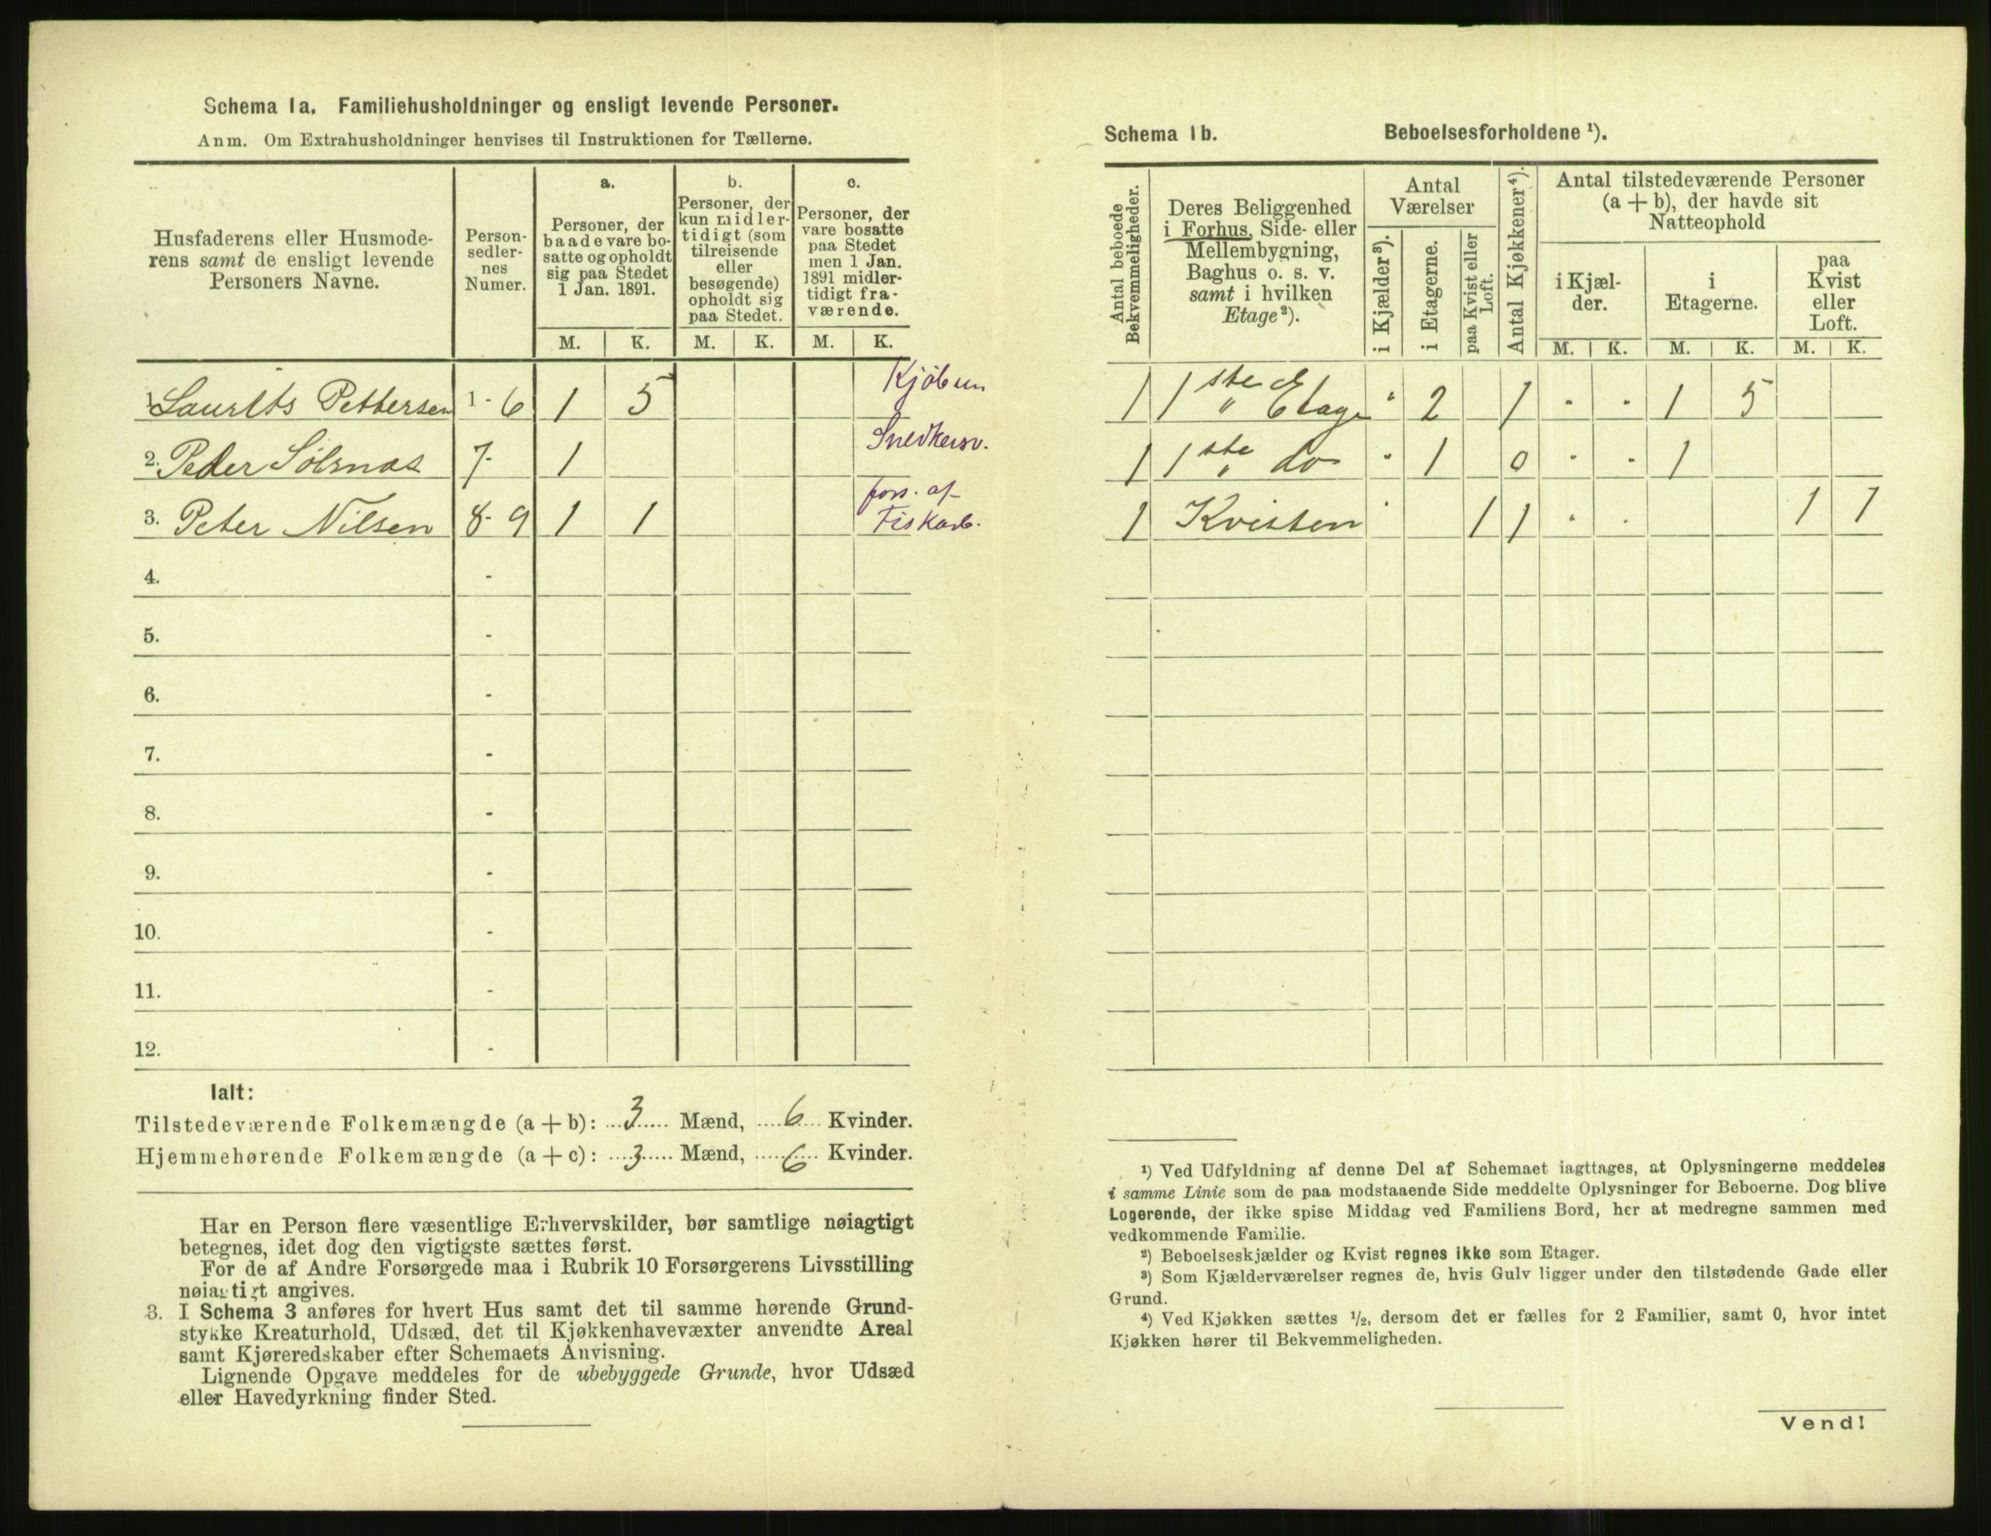 Schema 1a. Familiehusholdninger og ensligt levende Personer.
Anm. Om Extrahusholdninger henvises til Instruktionen for Tællerne.
Husfaderens eller Husmode-
rens samt de ensligt levende
Personers Navne.
Person-
sedler-
nes
Numer.
a.
Personer, der
baade vare bo-
satte og opholdt
sig paa Stedet
1 Jan. 1891.
b.
Personer, der
kun midler-
tidigt (som
tilreisende
eller
besøgende)
opholdt sig
paa Stedet.
c.
Personer, der
vare bosatte
paa Stedet
men 1 Jan.
1891 midler-
tidigt fra-
værende.
M. K. M. K. M. K.
1. Laurits Pettersen 1 - 6 1 5 Kjøbm
2. Peder Sølsnæs 7 - 1 Snedkersv.
3. Peter Nilsen 8 - 9 1 1 fors. af Fiskarb.
4. -
5. -
6. -
7. -
8. -
9. -
10. -
11. -
12. -
Ialt:
Tilstedeværende Folkemængde (a + b): 3 Mænd, 6 Kvinder.
Hjemmehørende Folkemængde (a + c): 3 Mænd, 6 Kvinder.
Har en Person flere væsentlige Erhvervskilder, bør samtlige nøiagtigt
betegnes, idet dog den vigtigste sættes først.
For de af Andre Forsørgede maa i Rubrik 10 Forsørgerens Livsstilling
nøiagtigt angives.
3. I Schema 3 anføres for hvert Hus samt det til samme hørende Grund-
stykke Kreaturhold, Udsæd, det til Kjøkkenhavevæxter anvendte Areal
samt Kjøreredskaber efter Schemaets Anvisning.
Lignende Opgave meddeles for de ubebyggede Grunde, hvor Udsæd
eller Havedyrkning finder Sted.
Schema 1b. Beboelsesforholdene ¹).
Antal beboede
Bekvemmeligheder.
Deres Beliggenhed
i Forhus, Side- eller
Mellembygning,
Baghus o. s. v.
samt i hvilken
Etage²).
Antal
Værelser
i Kjælder³).
i Etagerne.
paa Kvist eller
Loft.
Antal Kjøkkener⁴).
Antal tilstedeværende Personer
(a + b), der havde sit
Natteophold
i Kjæl-
der.
i
Etagerne.
paa
Kvist
eller
Loft.
M. K. M. K. M. K.
1 1ste " Etage " 2 1 " " 1 5
1 1ste " do " 1 0 " " 1
1 Kvisten " 1 1 " " 1 1
¹) Ved Udfyldning af denne Del af Schemaet iagttages, at Oplysningerne meddeles
i samme Linie som de paa modstaaende Side meddelte Oplysninger for Beboerne. Dog blive
Logerende, der ikke spise Middag ved Familiens Bord, her at medregne sammen med
vedkommende Familie.
²) Beboelseskjælder og Kvist regnes ikke som Etager.
³) Som Kjælderværelser regnes de, hvis Gulv ligger under den tilstødende Gade eller
Grund.
⁴) Ved Kjøkken sættes ½, dersom det er fælles for 2 Familier, samt 0, hvor intet
Kjøkken hører til Bekvemmeligheden.
Vend!